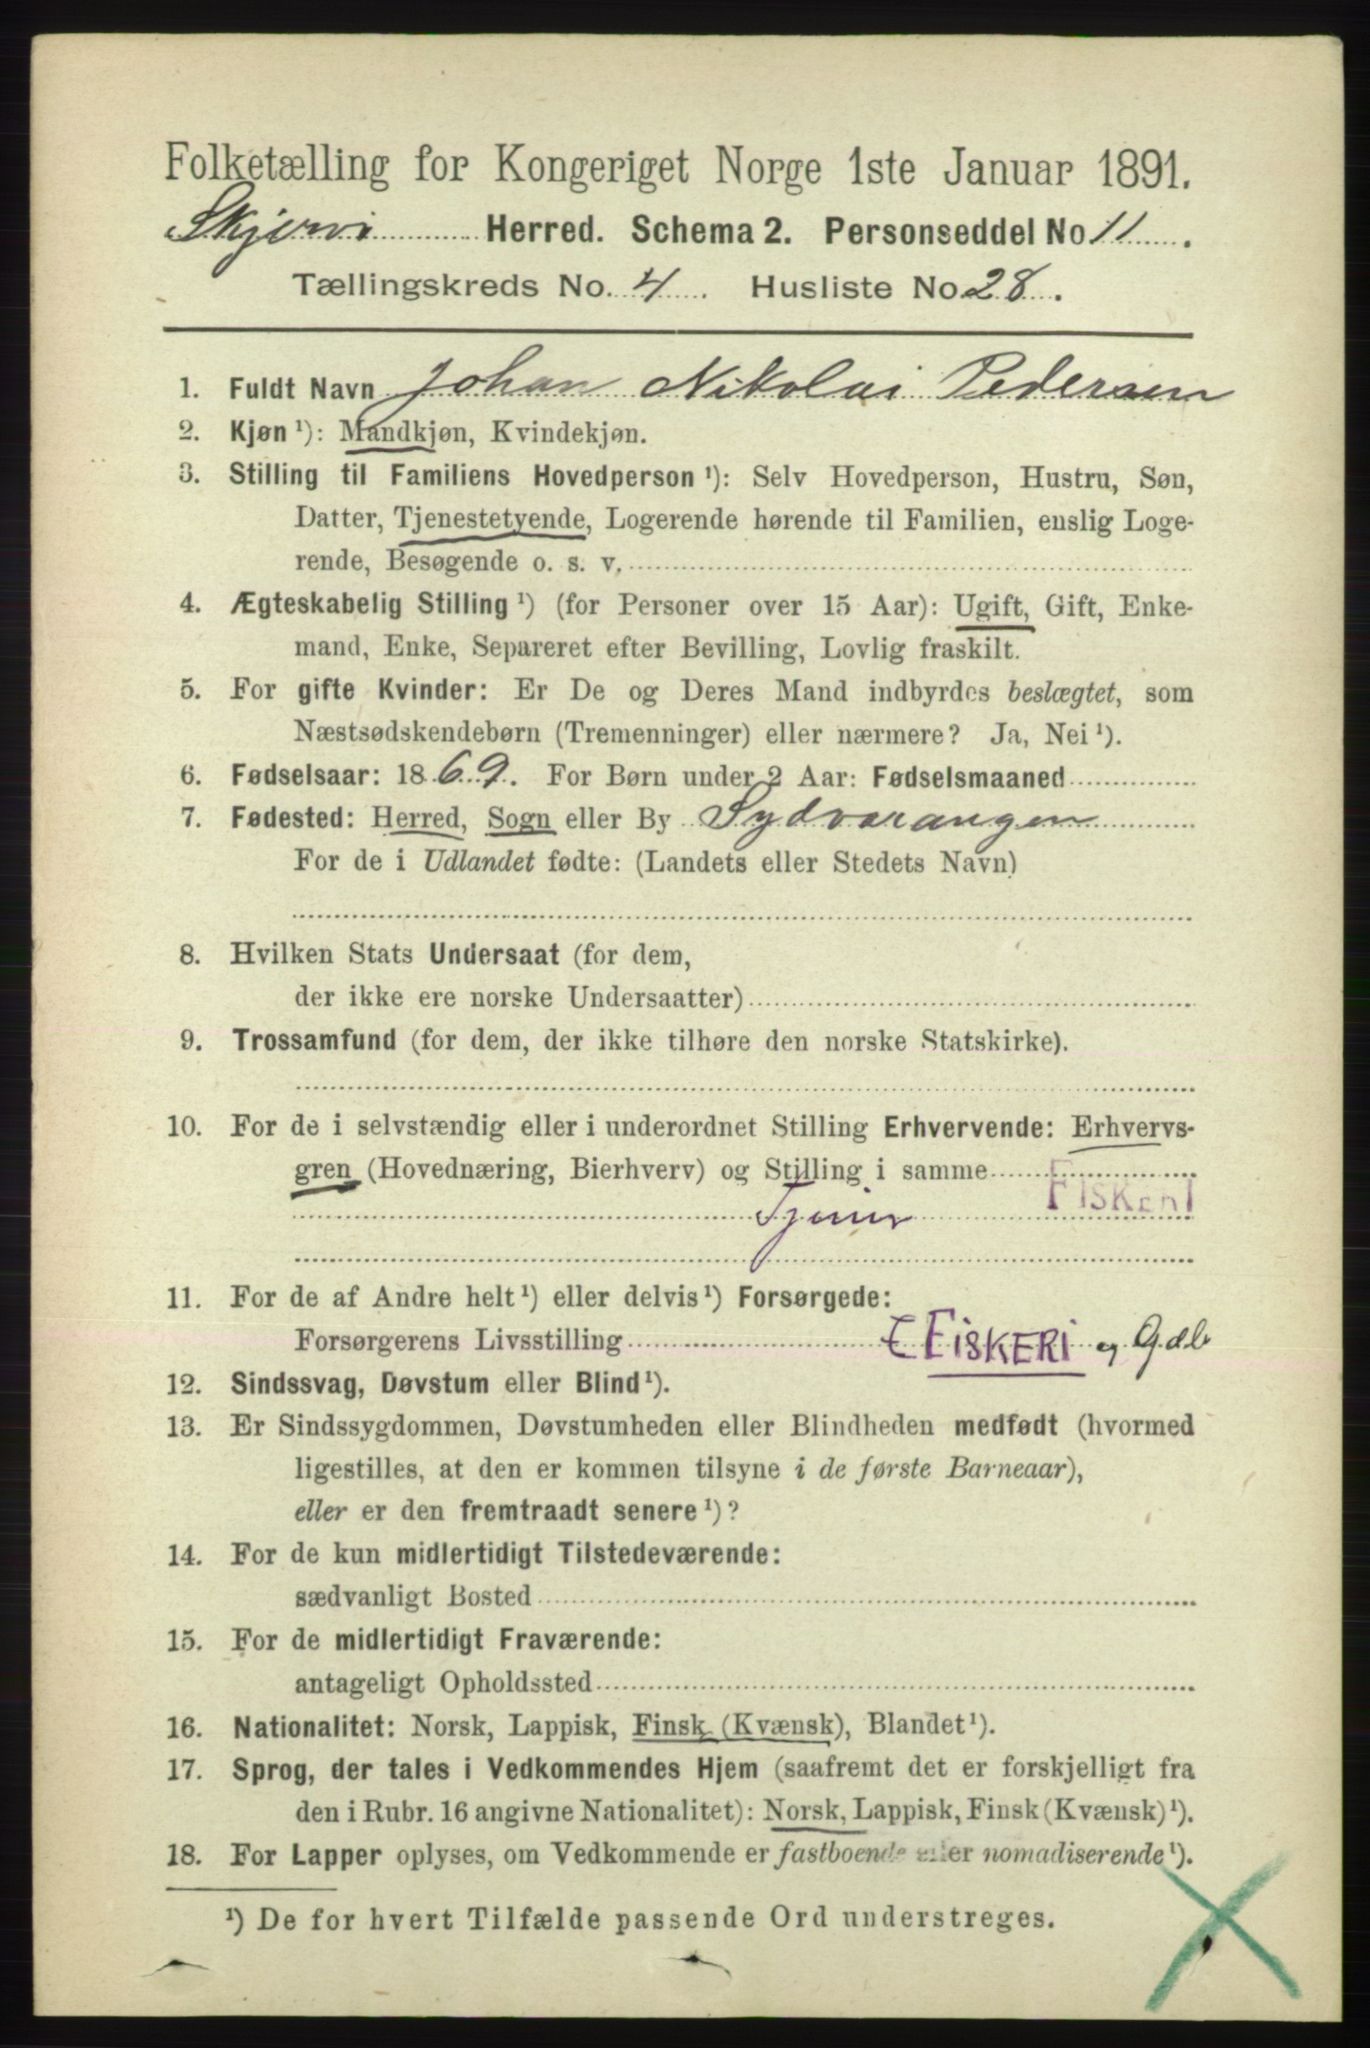 Folketælling for Kongeriget Norge 1ste Januar 1891.
Skjervø Herred. Schema 2. Personseddel No 11.
Tællingskreds No. 4. Husliste No 28.
1. Fuldt Navn Johan Nikolai Pedersen
2. Kjøn ¹): Mandkjøn, Kvindekjøn.
3. Stilling til Familiens Hovedperson ¹): Selv Hovedperson, Hustru, Søn,
Datter, Tjenestetyende, Logerende hørende til Familien, enslig Loge-
rende, Besøgende o. s. v.
4. Ægteskabelig Stilling ¹) (for Personer over 15 Aar): Ugift, Gift, Enke-
mand, Enke, Separeret efter Bevilling, Lovlig fraskilt.
5. For gifte Kvinder: Er De og Deres Mand indbyrdes beslægtet, som
Næstsødskendebørn (Tremenninger) eller nærmere? Ja, Nei ¹).
6. Fødselsaar: 1869. For Børn under 2 Aar: Fødselsmaaned
7. Fødested: Herred, Sogn eller By Sydvarangen
For de i Udlandet fødte: (Landets eller Stedets Navn)
8. Hvilken Stats Undersaat (for dem,
der ikke ere norske Undersaatter)
9. Trossamfund (for dem, der ikke tilhøre den norske Statskirke).
10. For de i selvstændig eller i underordnet Stilling Erhvervende: Erhvervs-
gren (Hovednæring, Bierhverv) og Stilling i samme
Tjener FISKERI
11. For de af Andre helt ¹) eller delvis ¹) Forsørgede:
Forsørgerens Livsstilling FISKERI og Gdb
12. Sindssvag, Døvstum eller Blind ¹).
13. Er Sindssygdommen, Døvstumheden eller Blindheden medfødt (hvormed
ligestilles, at den er kommen tilsyne i de første Barneaar),
eller er den fremtraadt senere ¹)?
14. For de kun midlertidigt Tilstedeværende:
sædvanligt Bosted
15. For de midlertidigt Fraværende:
antageligt Opholdssted
16. Nationalitet: Norsk, Lappisk, Finsk (Kvænsk), Blandet ¹).
17. Sprog, der tales i Vedkommendes Hjem (saafremt det er forskjelligt fra
den i Rubr. 16 angivne Nationalitet): Norsk, Lappisk, Finsk (Kvænsk) ¹).
18. For Lapper oplyses, om Vedkommende er fastboende eller nomadiserende ¹).
¹) De for hvert Tilfælde passende Ord understreges.